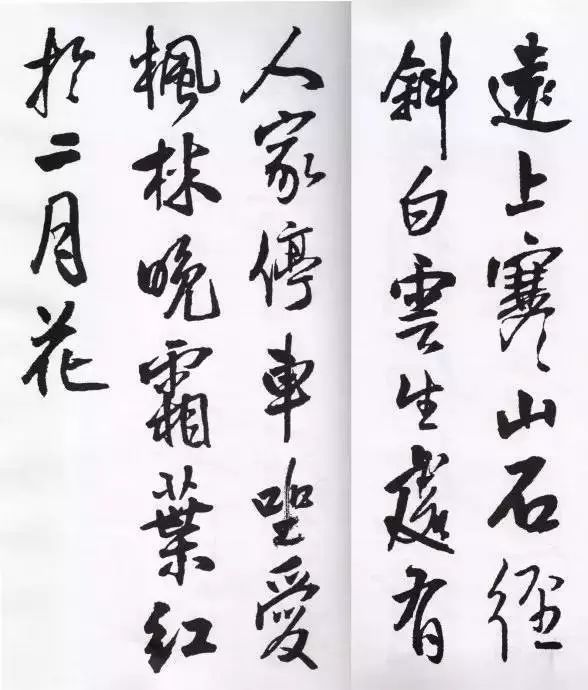 遠上寒山石徑
斜白雲生處有
人家停車坐愛
楓林晚霜葉紅
於二月花